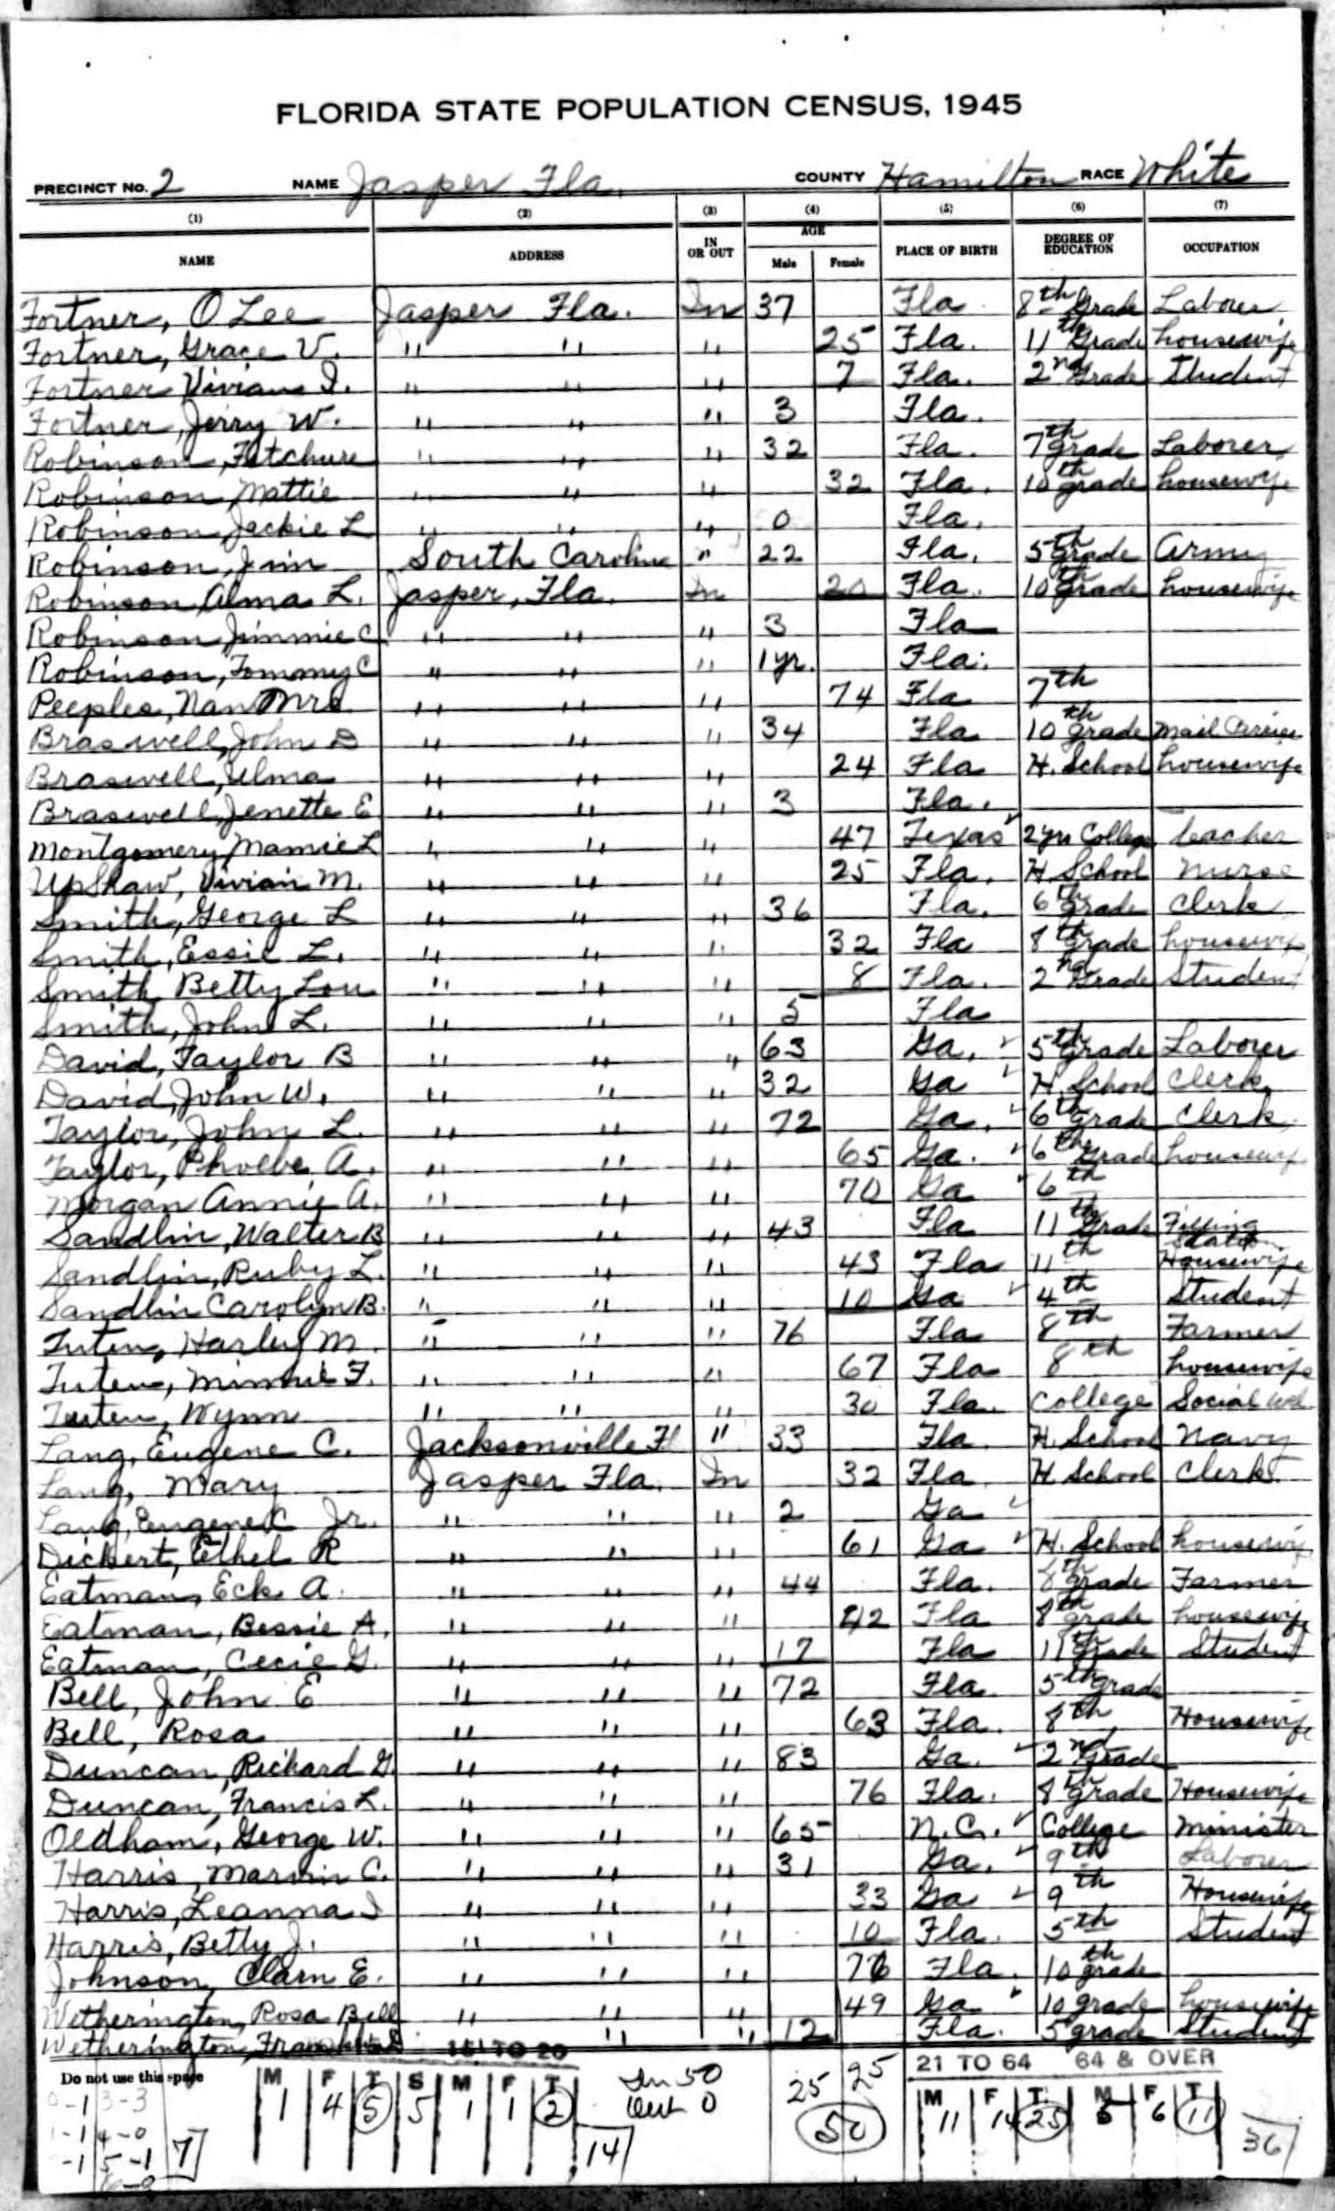 FLORIDA STATE POPULATION CENSUS, 1945
PRECINCT No. 2 NAME Jasper Fla. COUNTY Hamilton RACE White
(1) (2) (3) (4) (5) (6) (7)
NAME ADDRESS IN OR OUT AGE Male Female PLACE OF BIRTH DEGREE OF EDUCATION OCCUPATION
Fortner, O Lee Jasper Fla. In 37 Fla 8th Grade Laborer
Fortner, Grace V. " " " 25 Fla. 11th Grade housewife
Fortner Vivian I. " " " 7 Fla. 2nd Grade Student
Fortner, Jerry W. " " " 3 Fla.
Robinson, " " " 32 Fla. 7th grade Laborer
Robinson, Mattie " " " 32 Fla. 10th grade housewife
Robinson, Jackie L " " " 0 Fla.
Robinson, Jim South Carolina " 22 Fla. 5th grade Army
Robinson, Alma L. Jasper, Fla. In 20 Fla. 10th grade housewife
Robinson, Jimmie C " " " 3 Fla
Robinson, Tommy C " " " 1 yr. Fla.
Peeples, Nan Mrs. " " " 74 Fla 7th
Braswell, John D " " " 34 Fla 10th grade mail Carrier
Braswell, Ulma " " " 24 Fla H. School housewife
Braswell, Jenette E " " " 3 Fla.
Montgomery, Mamie L " " " 47 Texas 2 yrs College teacher
UpShaw, Vivian M. " " " 25 Fla. H School nurse
Smith, George L " " " 36 Fla. 6th grade Clerk
Smith, Essie L. " " " 32 Fla 8th grade housewife
Smith, Betty Lou " " " 8 Fla. 2nd Grade Student
Smith, John L. " " " 5 Fla
David, Taylor B " " " 63 Ga. 5th grade Laborer
David, John W. " " " 32 Ga H. School Clerk
Taylor, John L. " " " 72 Ga. 6th grade Clerk
Taylor, Phoebe A. " " " 65 Ga. 6th Grade housewife
Morgan Annie A. " " " 70 Ga 6th
Sandlin, Walter B " " " 43 Fla 11th Grade Filling Station
Sandlin, Ruby L. " " " 43 Fla 11th Housewife
Sandlin Carolyn B. " " " 10 Ga 4th Student
Tuten, Harley M. " " " 76 Fla 8th Farmer
Tuten, Minnie F. " " " 67 Fla 8th housewife
Tuten, Wynn " " " 30 Fla. College Social Wel.
Lang, Eugene C. Jacksonville Fl " 33 Fla. H. School Navy
Lang, Mary Jasper Fla. In 32 Fla H School Clerk
Lang, Eugene C Jr. " " " 2 Ga
Dickert, Ethel R " " " 61 Ga H. School housewife
Eatman, Eck A. " " " 44 Fla. 8th grade Farmer
Eatman, Bessie A. " " " 42 Fla 8th grade housewife
Eatman, Cecie G. " " " 17 Fla 11th Grade Student
Bell, John E " " " 72 Fla. 5th grade
Bell, Rosa " " " 63 Fla. 8th Housewife
Duncan, Richard G. " " " 83 Ga. 2nd Grade
Duncan, Francis L. " " " 76 Fla. 8th grade Housewife
Oldham, George W. " " " 65 N.C. College Minister
Harris, Marvin C. " " " 31 Ga. 9th Laborer
Harris, Leanna I " " " 33 Ga 9th Housewife
Harris, Betty J. " " " 10 Fla. 5th Student
Johnson, Clara E. " " " 76 Fla. 10th grade
Wetherington, Rosa Bell " " " 49 Ga 10 grade housewife
Wetherington, Franklin D " " 12 Fla. 5 grade Student
Do not use this space 15 TO 20 21 TO 64 64 & OVER
M F T S M F T In 50 25 25 M F T M F T
1 4 5 5 1 1 2 Out 0 50 11 14 25 5 6 11
0-1 3-3
1-1 4-0
-1 5-1 7 14 36
6-0